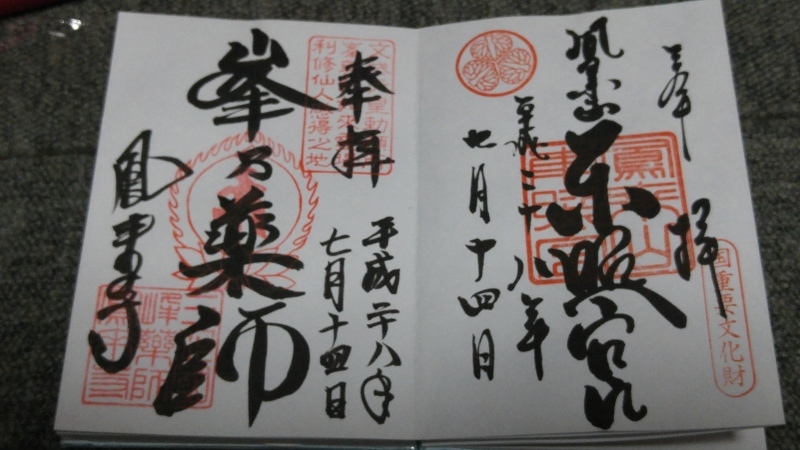 奉拝
鳳来山
東照宮
平成二十八年
七月十四日
国重要文化財
奉拝
平成二十八年
七月十四日
利修仙人
之地
峯乃薬師
鳳来寺
峰薬師